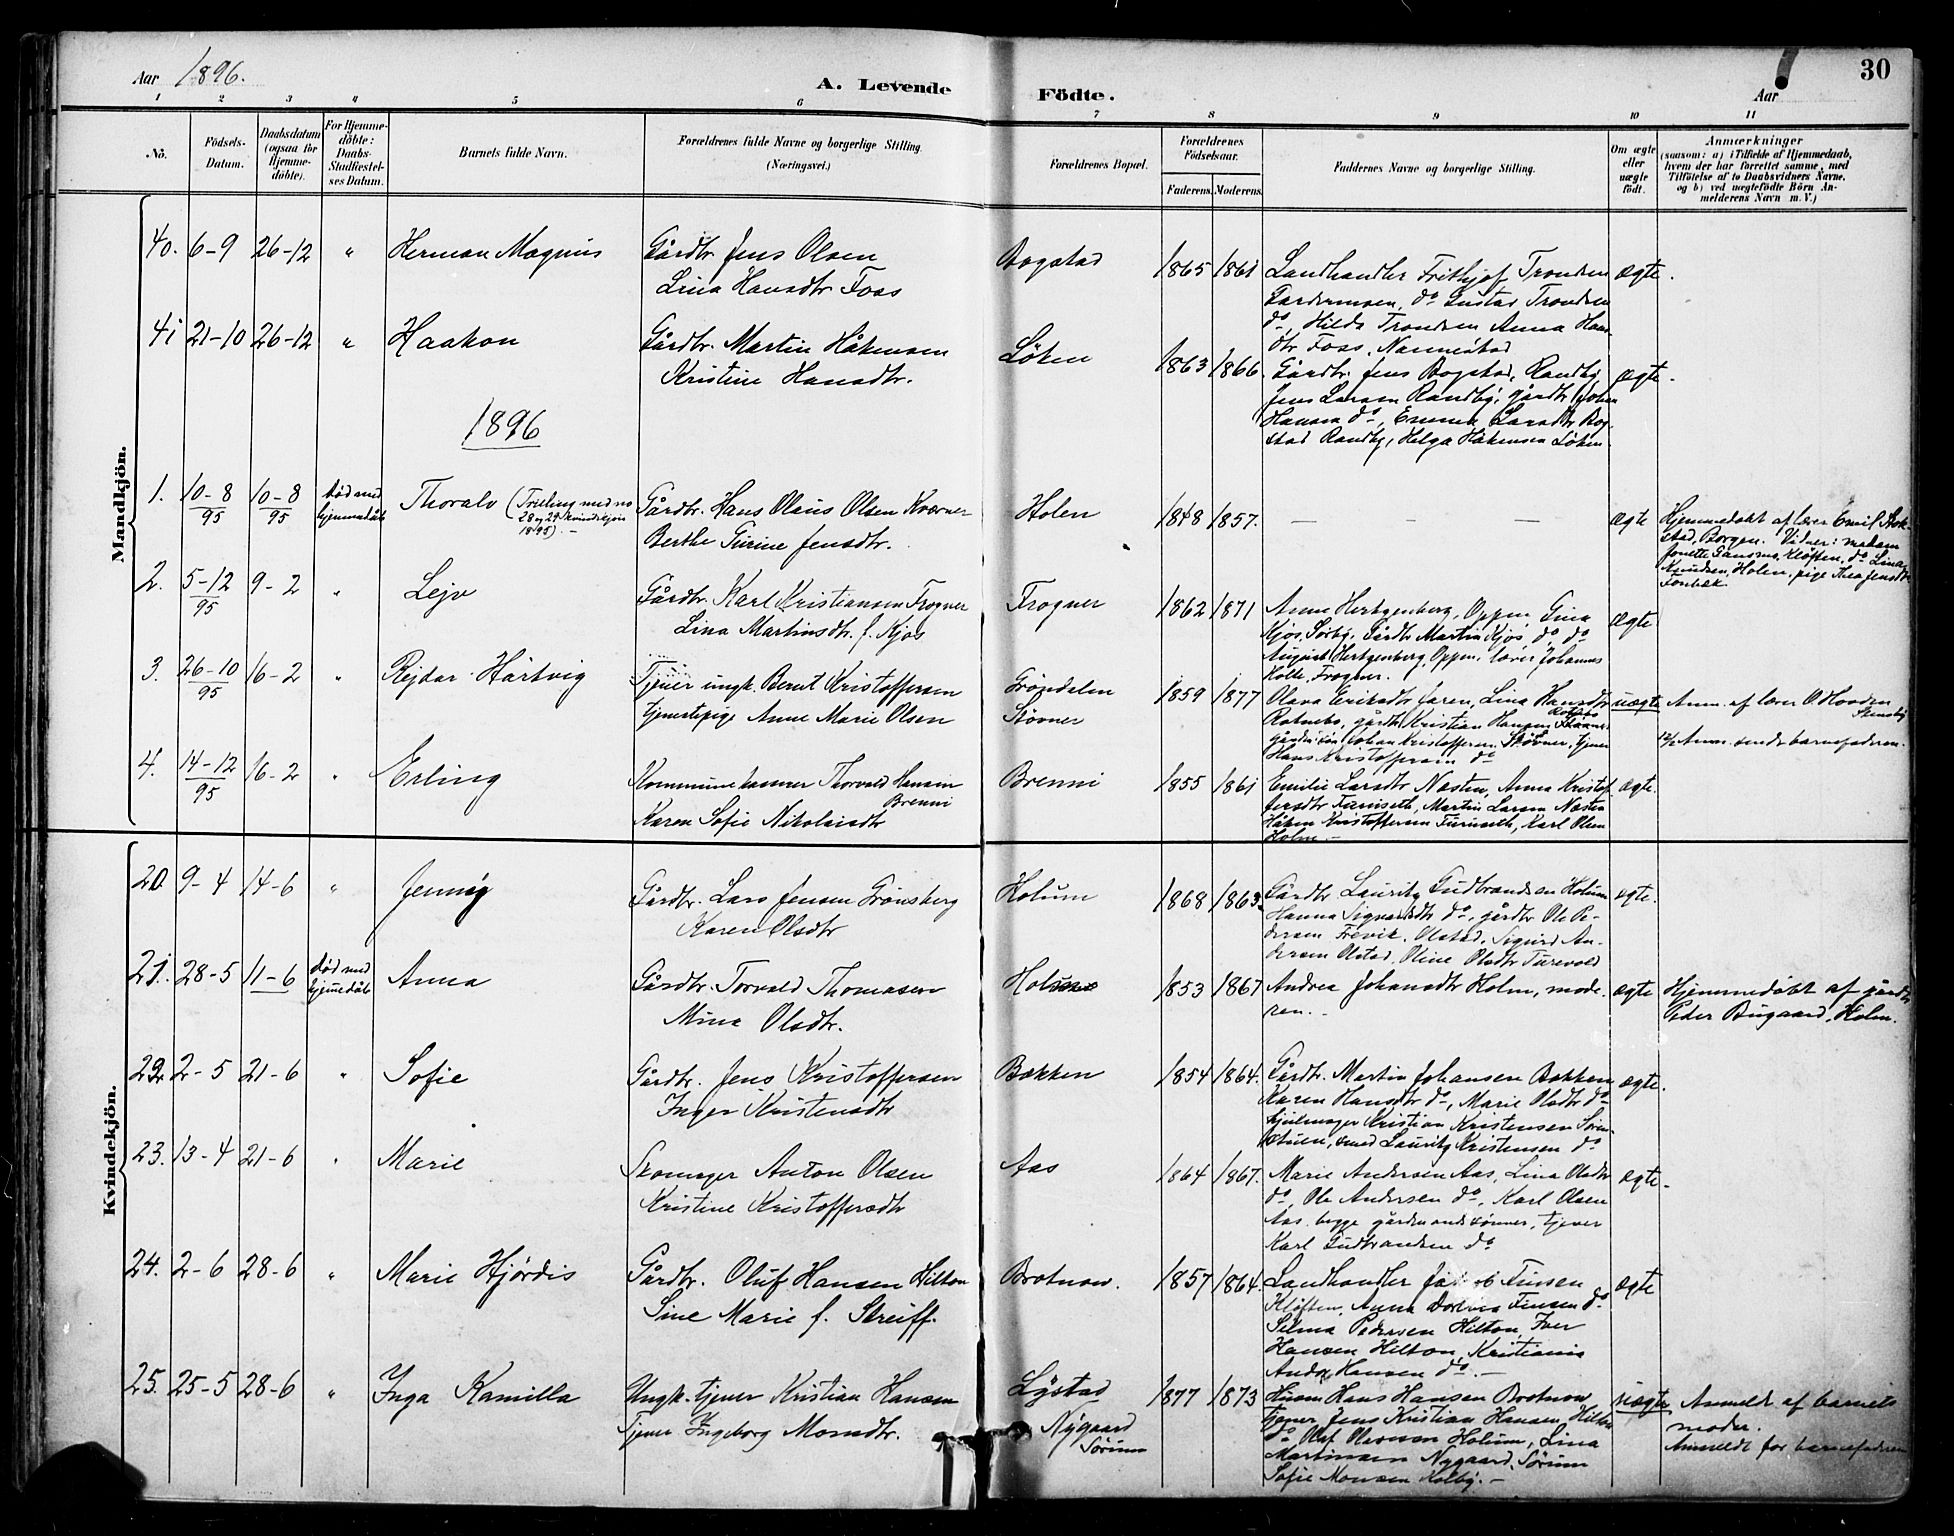 Aar 1896.
A. Levende Födte.
Aar
30
1 2 3 4 5 6 7 8 9 10 11
No.
Födsels-Datum.
Daabsdatum (ogsaa för Hjemme-döbte).
For Hjemme-döbte: Daabs-Stadfæstel-ses Datum.
Barnets fulde Navn.
Forældrenes fulde Navne og borgerlige Stilling. (Næringsvei.)
Forældrenes Bopæl.
Forældrenes Födselsaar.
Faderens. Moderens.
Faddernes Navne og borgerlige Stilling.
Om ægte eller uægte födt.
Anmærkninger
(saasom: a) i Tilfælde af Hjemmedaab,
hvem der har forrettet samme, med
Tilföielse af to Daabsvidners Navne,
og b) ved uægtefödte Börn An-
melderens Navn m. V.)
Mandkjön.
40. 6-9 26-12 " Herman Magnus
Gårdbr. Jens Olsen
Lina Hansdtr Foss
Bogstad 1865 1861
Landhandler Frithjof Trondsen
Gardermoen, do Gustav Trondsen
do, Hilda Trondsen Anna Hans-
dtr Foss, Nannestad
ægte.
41 21-10 26-12 " Haakon
Gårdbr. Martin Håkensen
Kristine Hansdtr.
Löken 1863 1866.
Gårdbr. Jens Bogstad, Randby
Jens Larsen Randby, gårdbr Johan
Hansen do, Emma Larsdtr Bog-
stad Randby, Helga Håkensen Löken.
ægte.
1896
1. 10-8/95 10-8/95 död med hjemmedåb
Thoralv (Trilling med no 28 og 29 kvindekjön 1895). -
Gårdbr. Hans Olaus Olsen Kværner
Berthe Turine Jensdtr.
Holen 1848 1857. — — —
ægte
Hjemmedöbt af lærer Emil Ask-
stad, Borgen. Vidner: madam
Jonette Gansmo, Klöften, do Lina
Knudsen, Holen, pige Thea Jensdtr
Fonbæk
2. 5-12/95 9-2 " Lejv
Gårdbr. Karl Kristiansen Frogner
Lina Martinsdtr. f. Kjos
Frogner 1862 1871
Anne Hertgenberg, Oppen, Gina
Kjos, Sörby, Gårdbr Martin Kjos do, do
August Hertgenberg, Oppen, lærer Johannes
Holte, Frogner.
ægte
3. 26-10/95 16-2 " Rejdar Hartvig
Tjener ungk. Bernt Kristoffersen
tjenestepige Anne Marie Olsen
Gröndalen
Stövner
1859 1877
Olava Eriksdtr Faren, Lina Hansdtr
Rotnebo, gårdbr Kristian Hansen
gårdm. sön Johan Kristoffersen Stövner, tjener
Hans Kristoffersen do
uægte
Anm. af lærer O. Hovden
Stensby
12/2 Anm. sendt barnefaderen.
4. 14-12/95 16-2 " Erling
Kommunekasserer Thorvald Hansen
Brenni
Karen Sofie Nikolaisdtr
Brenni 1855 1861
Emilie Larsdtr Næsten, Anna Kristof-
fersdtr Furuseth, Martin Larsen Næsten
Håken Kristoffersen Furuseth, Karl Olsen
Holm. -
ægte.
Kvindekjön.
20. 9-4 14-6 " Jenny
Gårdbr. Lars Jensen Grönsberg
Karen Olsdtr
Holum 1868 1863.
Gårdbr Lauritz Gudbrandsen Holum
Hanna Sigvartsdtr do, gårdbr Ole Pe-
dersen Frevik, Olstad, Sigurd An-
dersen Olstad, Oline Olsdtr Turevold
ægte.
21. 28-5 11-6 död med hjemmedåb Anna
Gårdbr. Torvald Thomasen
Mina Olsdtr.
Holm 1853 1867
Andrea Johansdtr Holm, mode-
ren. -
ægte
Hjemmedöbt af gårdbr
Peder Bugaard, Holm.
22. 2-5 21-6 " Sofie
Gårdbr. Jens Kristoffersen
Inger Kristensdtr
Bakken 1854 1864.
Gårdbr. Martin Johansen Bakken
Karen Hansdtr do, Marie Olsdtr do
hjulmager Kristian Kristensen Sörm-
stuen, smed Lauritz Kristensen do
ægte.
23. 13-4 21-6 " Marie
Skomager Anton Olsen
Kristine Kristoffersdtr
Aas 1864 1867.
Marie Andersen Aas, Lina Olsdtr
do, Ole Andersen do, Karl Olsen
Aas, begge gårdmandssönner, tjener
Karl Gudbrandsen do
ægte.
24. 2-6 28-6 " Marie Hjördis
Gårdbr. Oluf Hansen Hilton
Sine Marie f. Streiff.
Brotnov. 1857 1864.
Landhandler Finsen
Klöften, Anna Dorthea Finsen do.
Selma Pedersen Hilton, Iver
Hansen Hilton, Kristiania
Andr. Hansen do. -
ægte
25. 25-5 28-6 " Inga Kamilla
Ungk. tjener Kristian Hansen
Tjener Ingeborg Monsdtr.
Lystad
Nygaard
Sörum
1877 1873
Husm. Hans Hansen Brotnov
tjener Jens Kristian Hansen Hilton
do Olaf Olavesen Holum, Lina
Martinsen Nygaard, Sörum
Sofie Monsen Kolby. -
uægte
Anmeldt af barnets
moder.
Anmeldt for barnefaderen